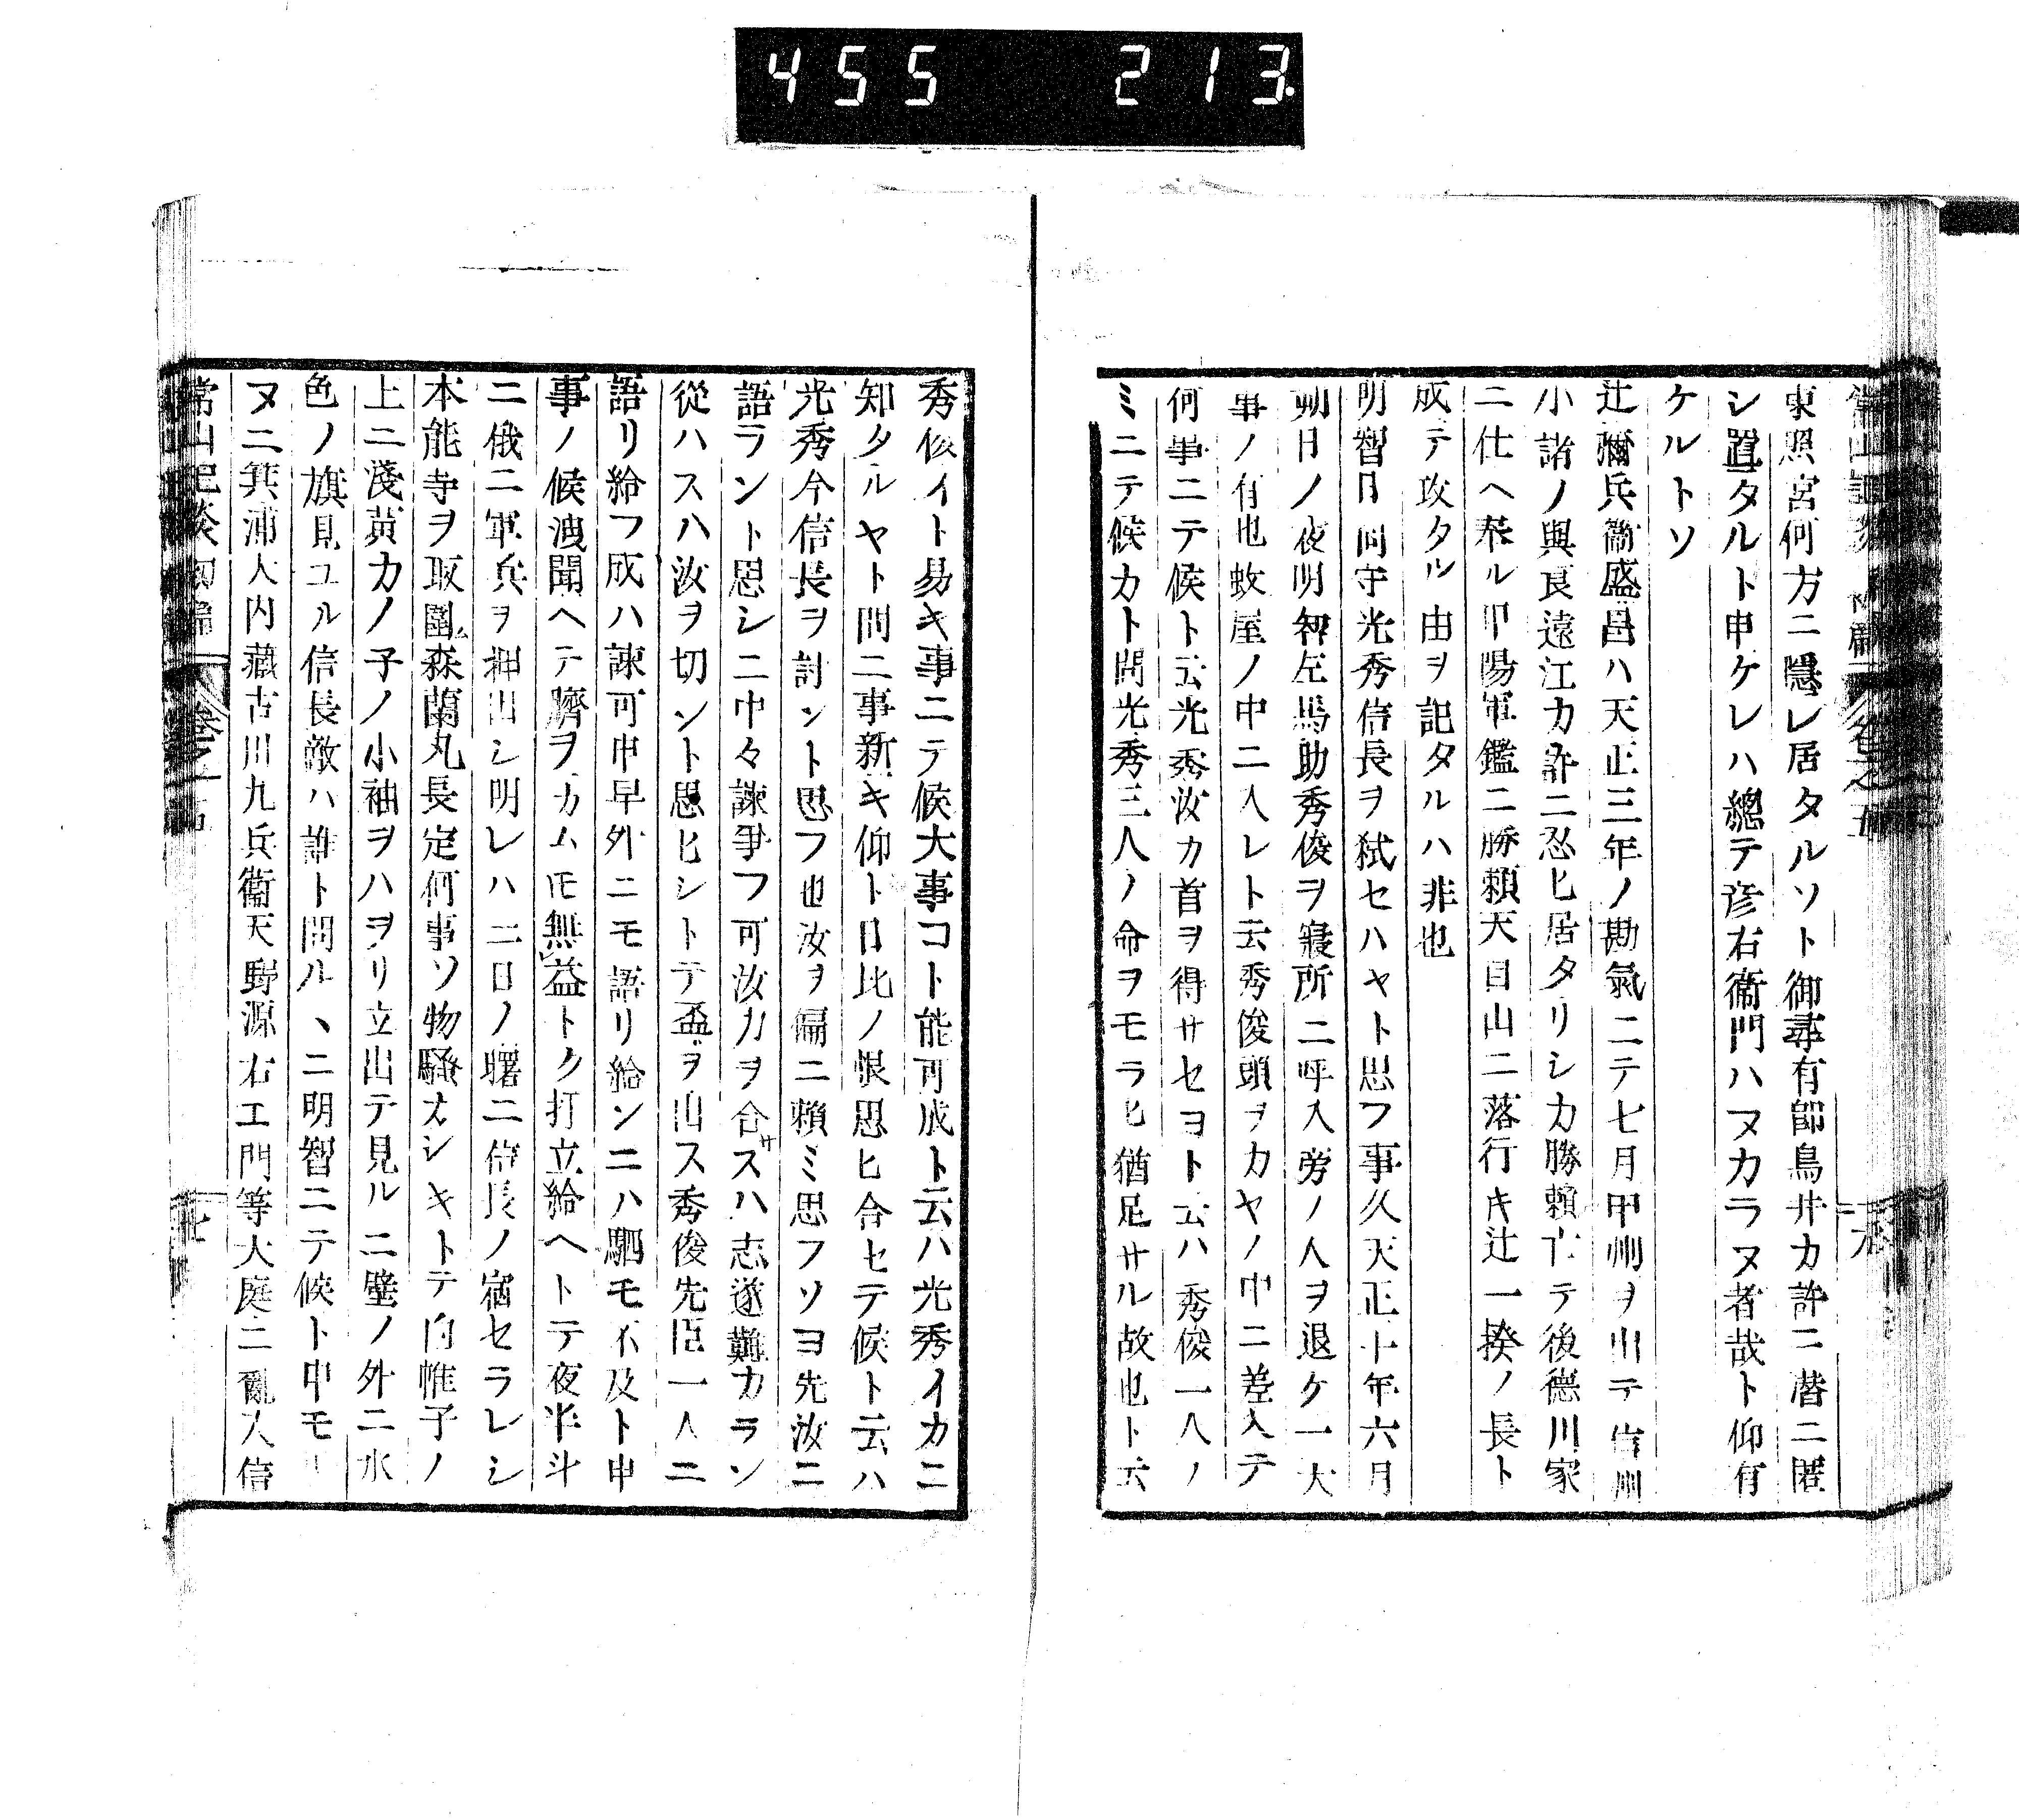 455 213
東照宮何方ニ隱レ居タルソト御尋有節鳥井カ許ニ潜ニ匿
シ置タルト申ケレハ總テ彦右衞門ハヌカラヌ者哉ト仰有
ケルトソ
辻彌兵衞盛昌ハ天正三年ノ勘氣ニテ七月甲州ヲ出テ信州
小諸ノ與良遠江カ許ニ忍ヒ居タリシカ勝賴亡テ後德川家
ニ仕ヘ奉ル甲陽軍鑑ニ勝賴天目山ニ落行キ辻一揆ノ長ト
成テ攻タル由ヲ記タルハ非也
明智日向守光秀信長ヲ弑セハヤト思フ事久天正十年六月
朔日ノ夜明智左馬助秀俊ヲ寢所ニ呼入旁ノ人ヲ退ケ一大
事ノ有也蚊屋ノ中ニ入レト云秀俊頭ヲカヤノ中ニ差入テ
何事ニテ候ト云光秀汝カ首ヲ得サセヨト云ハ秀俊一人ノ
ミニテ候カト問光秀三人ノ命ヲモラヒ猶足サル故也ト云
秀俊イト易キ事ニテ候大事コト能可成ト云ハ光秀イカニ
知タルヤト問ニ事新キ仰ト日比ノ恨思ヒ合セテ候ト云ハ
光秀今信長ヲ討ント思フ也汝ヲ偏ニ賴ミ思フソヨ先汝ニ
語ラント思シニ中々諫爭フ可汝力ヲ合サスハ志遂難カラン
從ハスハ汝ヲ切ント思ヒシトテ盃ヲ出ス秀俊先臣一人ニ
語リ給フ成ハ諫可申早外ニモ語リ給ンニハ駟モ不及ト申
事ノ候洩聞ヘテ臍ヲカムモ無益トク打立給ヘトテ夜半斗
ニ俄ニ軍兵ヲ押出シ明レハ二日ノ曙ニ信長ノ宿セラレシ
本能寺ヲ取圍ム森蘭丸長定何事ソ物騷カシキトテ白帷子ノ
上ニ淺黃カノ子ノ小袖ヲハヲリ立出テ見ルニ壁ノ外ニ水
色ノ旗見ユル信長敵ハ誰ト問ル丶ニ明智ニテ候ト申モ
ヌニ箕浦大内藏古川九兵衞天野源右エ門等大庭ニ亂入信
常山紀談初編 卷之